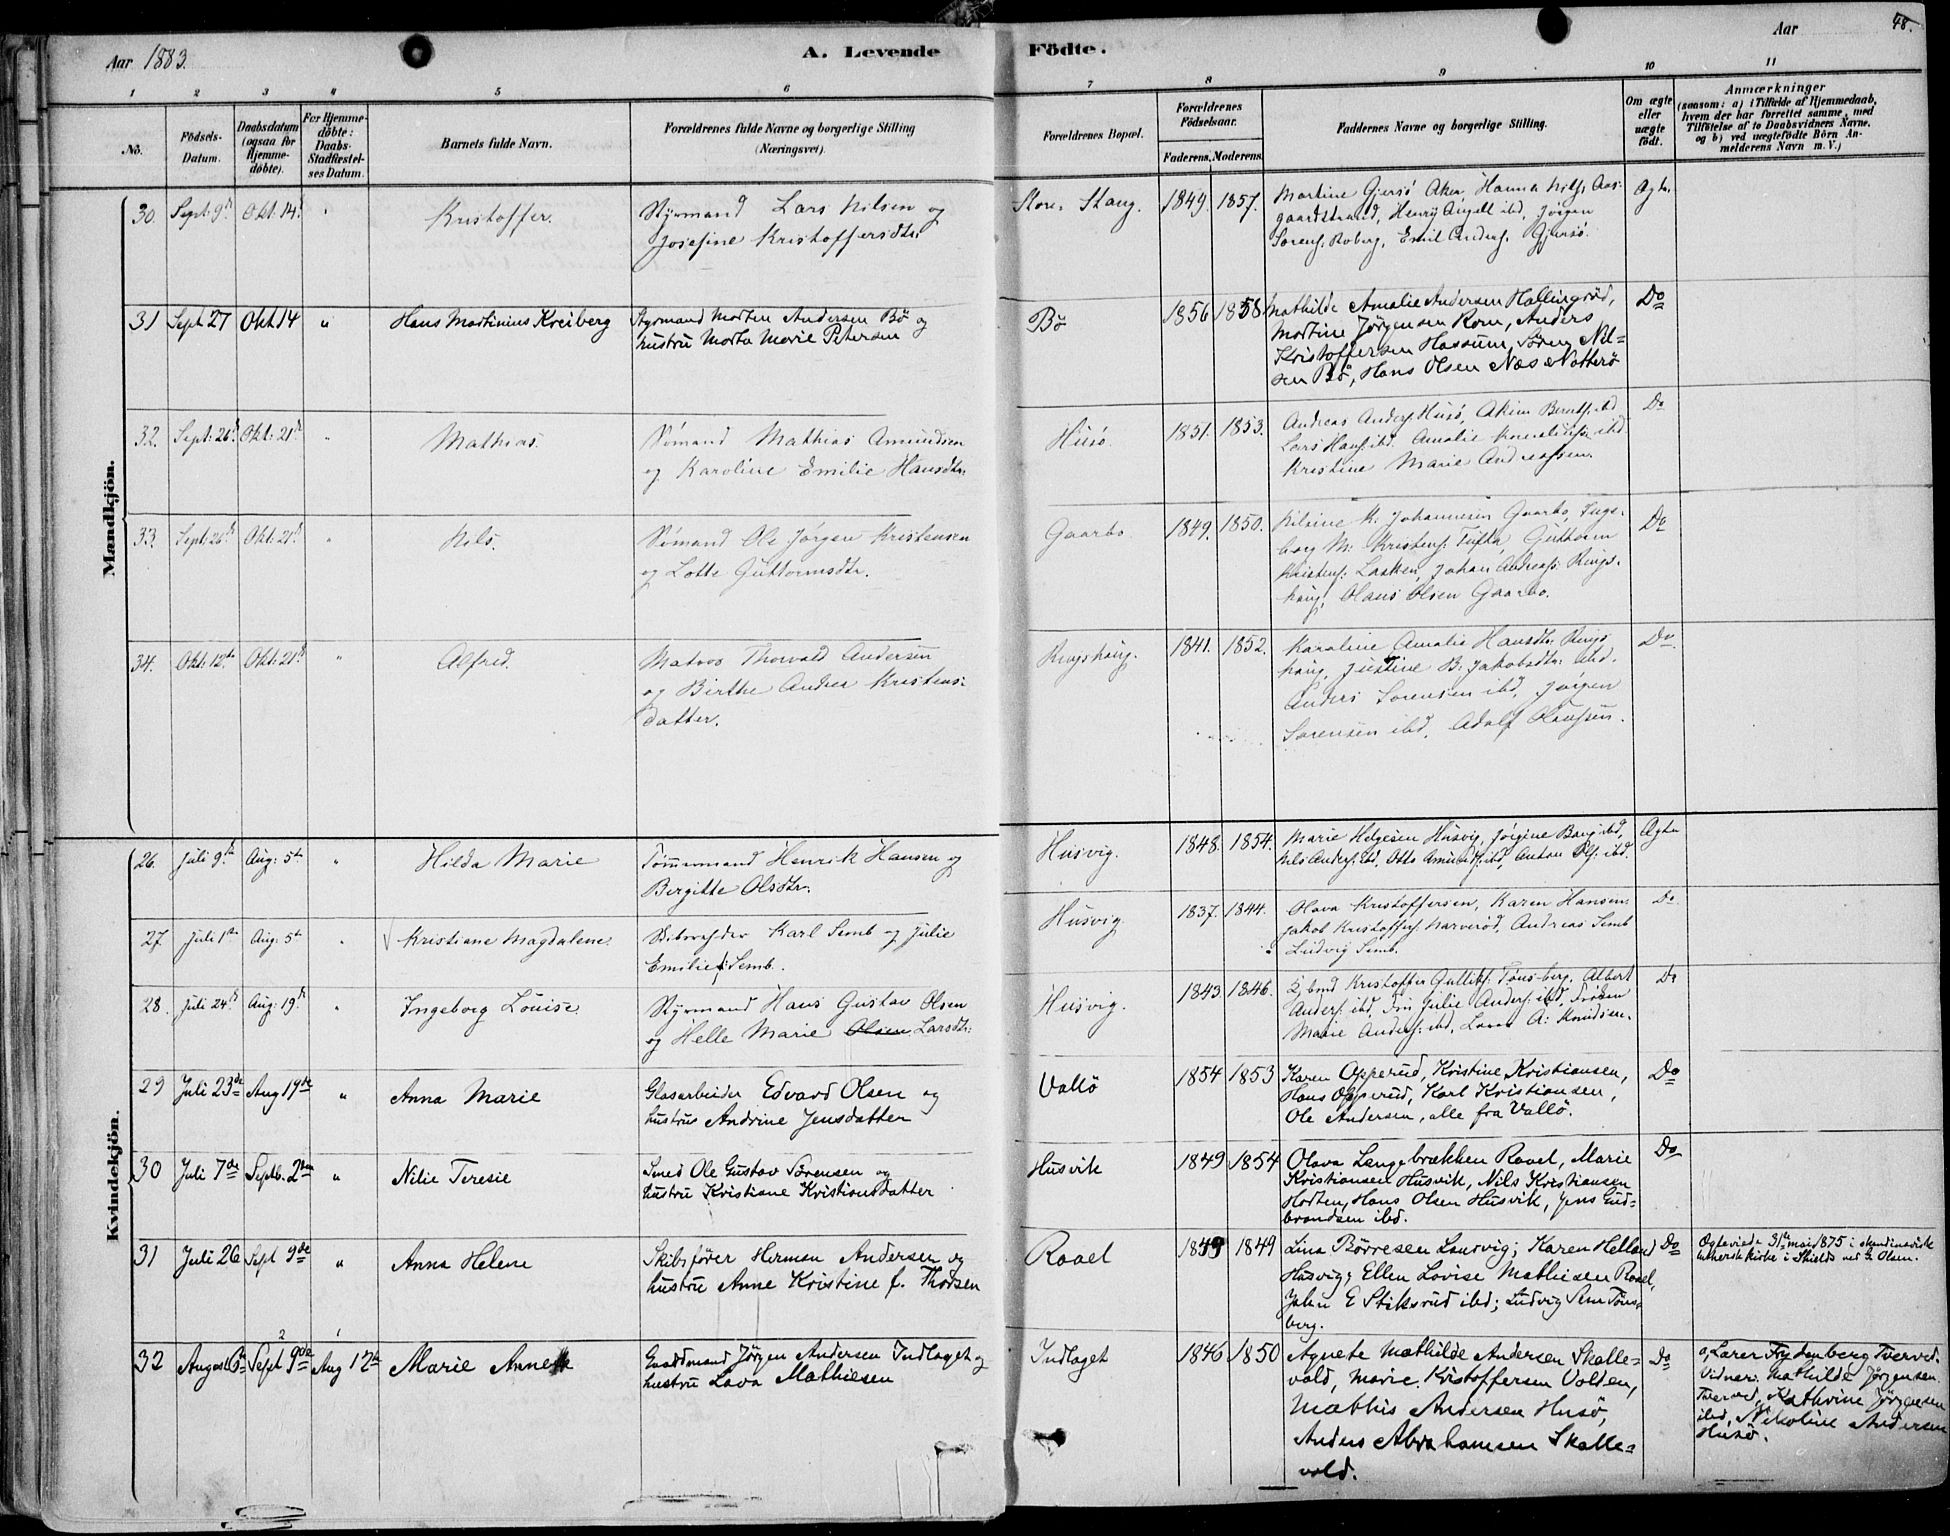 Aar 1883.
A. Levende
Födte.
Aar
48.
1 2 3 4 5 6 7 8 9 10 11
No.
Födsels-Datum.
Daabsdatum (ogsaa for Hjemmedöbte).
For Hjemmedöbte: Daabs-Stadfæstelses Datum.
Barnets fulde Navn.
Forældrenes fulde Navne og borgerlige Stilling
(Næringsvei).
Forældrenes Bopæl.
Forældrenes Födselsaar.
Faderens. Moderens.
Faddernes Navne og borgerlige Stilling.
Om ægte eller uægte födt.
Anmærkninger
(saasom: a) i Tilfælde af Hjemmedaab,
hvem der har forrettet samme, med
Tilföielse af to Daabsvidners Navne,
og b) ved uægtefödte Börn Anmelderens Navn m. V.)
Mandkjön.
30 Sept: 9de Okt: 14de " Kristoffer. Styrmand Lars Nilsen og
Josefine Kristoffersdtr:
Store Stang. 1849. 1857. Martine Gjersö Aker, Hanna Nils: Aas-
gaardstrand, Henry Angell ibd, Jörgen
Sörens: Roberg, Emil Anders: Gjersö. Ægte.
31 Sept 27 Okt 14 " Hans Martinius Kreiberg Styrmand Morten Andersen Bö og
hustru Marta Marie Petersen
Bö 1856 1858 Mathilde Amalie Andersen Hallingröd,
Martine Jörgensen Rom, Anders
Kristoffersen Hassum, Sören Nil=
sen Bö, Hans Olsen Næs Nötterö Do
32. Sept: 26de Okt: 21de " Mathias. Sömand Mathias Amundsen
og Karoline Emilie Hansdtr:
Husö. 1851. 1853. Andreas Anders: Husö, Akim Bernts: ibd
Lars Hans: ibd. Amalie Kornelius: ibd
Kristine Marie Andreassen. Do
33. Sept: 26de Okt: 21de " Nils. Sömand Ole Jörgen Kristensen
og Lotte Guttormsdtr.
Gaarbo. 1849. 1850. Nilsine M: Johannesen Gaarbo, Inge-
borg M: Kristens: Tufta, Guttorm
Kristens: Lasken, Johan Andreas: Rings-
haug, Olaus Olsen Gaarbo. Do
34. Okt: 12te Okt: 21de " Alfred. Matros Thorvald Andersen
og Birthe Andrea Kristens-
datter.
Ringshaug. 1841. 1852. Karoline Amalie Hansdtr: Rings-
haug, Justine B: Jakobsdtr: ibid.
Anders Sörensen ibd, Jörgen
Sörensen ibd, Adolf Olaussen. Do
Kvindekjön.
26. Juli 9de Aug: 5te " Hilda Marie Tömmermand Henrik Hansen og
Birgitte Olsdtr:
Husvig. 1848. 1854. Marie Helgesen Husvig, Jörgine Bang ibd,
Nils Anders: ibd, Otto Amunds: ibd, Anton Ols: ibd. Ægte
27 Juli 1ste Aug: 5te " Kristiane Magdalene. Skibsreder Karl Semb og Julie
Emilie Semb.
Husvig. 1837. 1844. Olava Kristoffersen, Karen Hansen
Jakob Kristoffers: Narveröd, Andreas Semb
Ludvig Semb. Do
28. Juli 24de Aug: 19de " Ingeborg Louise Styrmand Hans Gustav Olsen
og Helle Marie Olsen Larsdtr:
Husvig. 1843 1846. Kristoffer Gulliks: Tönsberg, Albert
Anders: ibd, Julie Anders: ibd, Fröken
Marie Anders: ibd, Laura A: Knudsen. Do
29 Juli 23de Aug 19de " Anna Marie Glasarbeider Edvard Olsen og
hustru Andrine Jensdatter
Vallö 1854 1853 Karen Opperud, Kristine Kristiansen,
Hans Opperud, Karl Kristiansen,
Ole Andersen, alle fra Vallö. Do
30 Juli 7de Septb. 2den " Nilie Teresie Smed Ole Gustav Sörensen og
hustru Kristiane Kristiansdatter
Husvik 1849 1854 Olava Langebrækken Ravel, Marie
Kristiansen Husvik, Nils Kristiansen
Horten, Hans Olsen Husvik, Jens Gud=
brandsen ibd. Do
31 Juli 26 Sept 9de " Anna Helene Skibsförer Herman Andersen og
hustru Anne Kristine f. Thorsen
Raael 1849 1849 Lina Börresen Lansvig; Karen Helland
Husvig; Ellen Lovise Mathisen Raael,
John E Stiksrud ibd; Ludvig Sem Töns-
berg. Do Ægteviede 31te mai 1875 i skandinavisk
luthersk kirke i Shields ved G Olsen.
32 August 6te Sept 9de Aug 12te Marie Annette Gaardmand Jörgen Andersen Indlaget og
hustru Lava Mathiesen
Indlaget 1846 1850 Agnete Mathilde Andersen Skalle=
vold, Marie Kristoffersen Volden,
Mathis Andersen Husö,
Anders Abrahamsen Skalle=
vold. Do a, Lærer Frydenberg Tverved.
Vidner: Mathilde Jörgensen
Tverved, Kathrine Jörgensen
ibd, Nikoline Andersen
Husö.